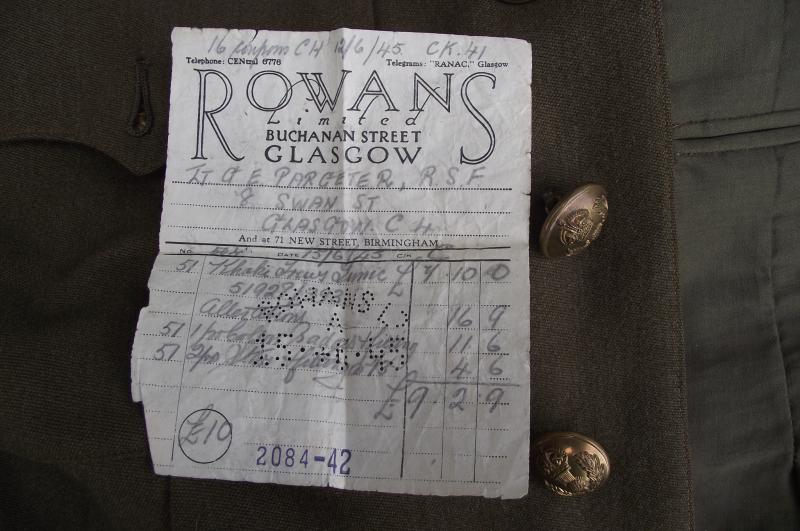 16 coupons CH 12/6/45 CK.41
Telephone: CENtral 6776 Telegrams: "RANAC," Glasgow
ROWANS
Limited
BUCHANAN STREET
GLASGOW
Lt G E PARGETER, R.S.F.
8 SWAN ST
GLASGOW. C 4.
And at 71 NEW STREET, BIRMINGHAM
No. DATE 15/6/45 C/K
51 Khaki Tunic £ 7 10 0
Alterations 16 9
51 1 pr 11 6
51 2 pr 4 6
ROWANS
£ 9. 2. 9
£10
2084-42